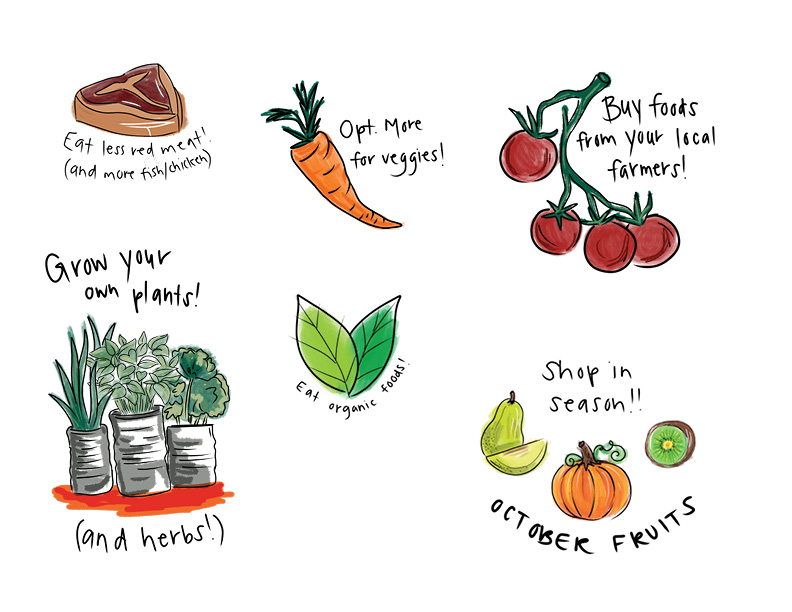 Eat less red meat!
(and more fish/chicken)
Opt. More
for veggies!
Buy foods
from your local
farmers!
Grow your
own plants!
(and herbs!)
Eat organic foods!
Shop in
season!!
OCTOBER FRUITS